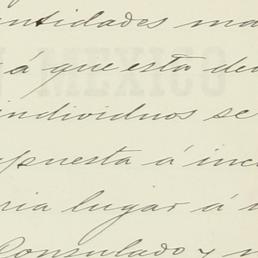 ntidades ma
á que está de
individuos se
puesta á inc
ria lugar á
Consulado y